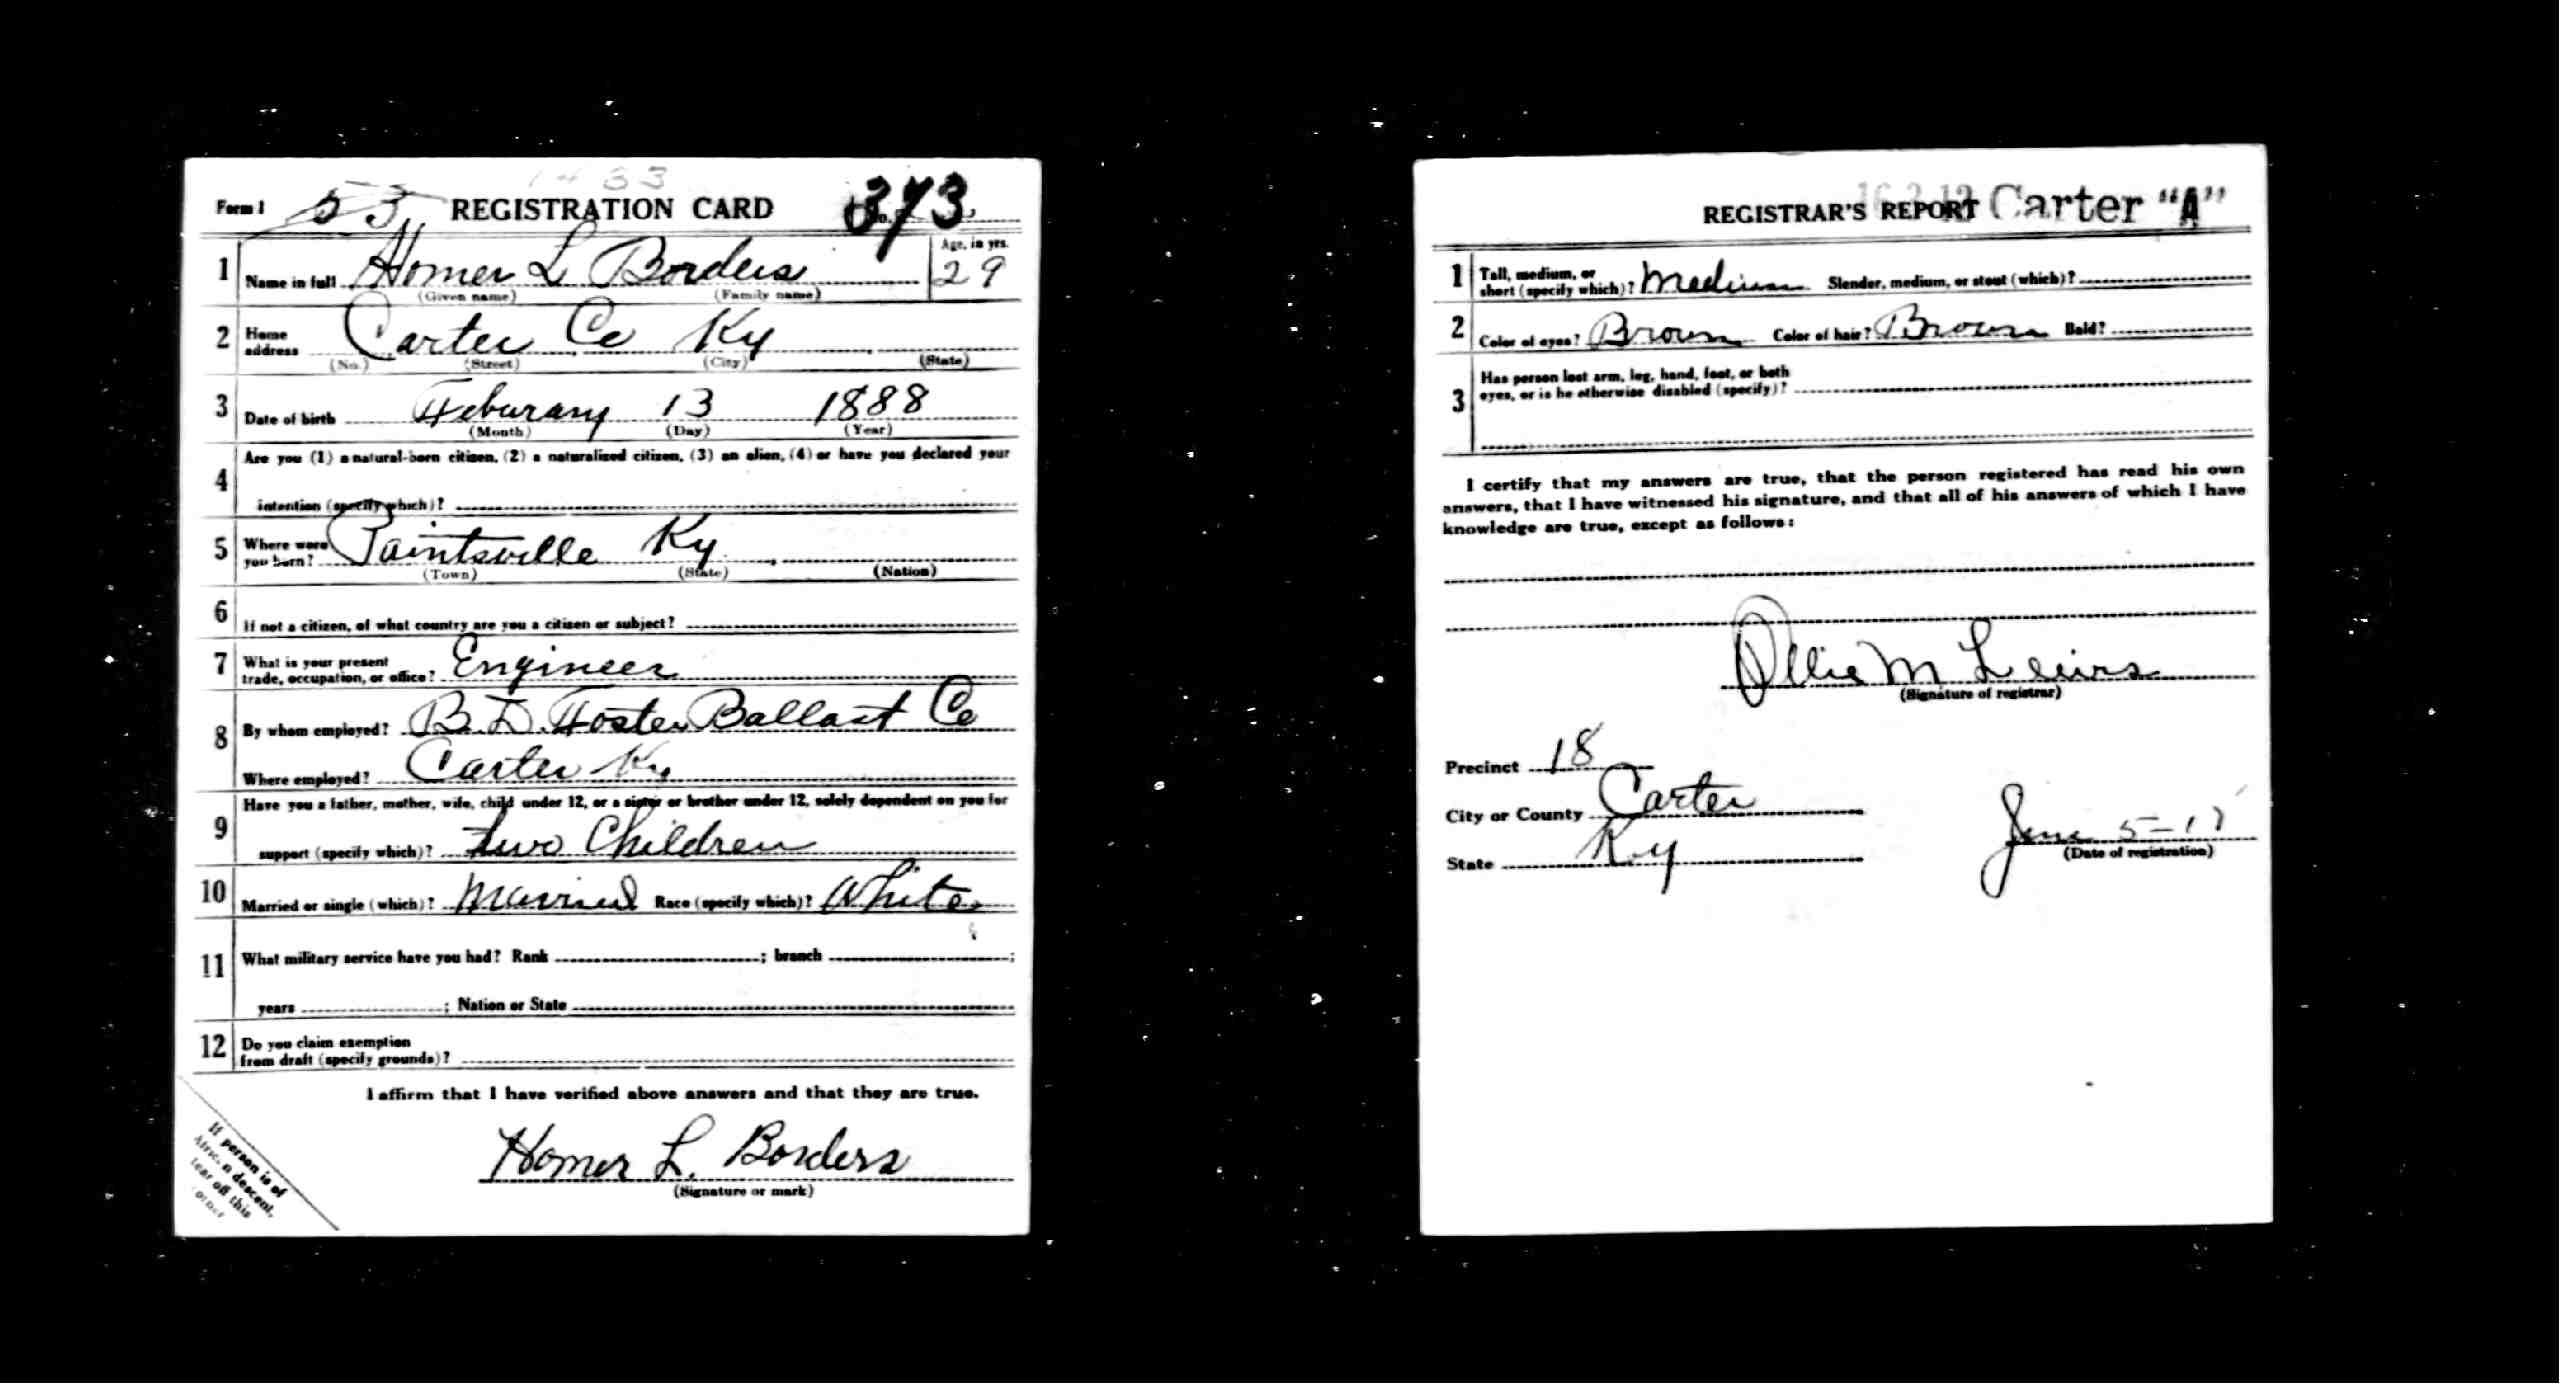 Form 1 53 REGISTRATION CARD No. 373
1 Name in full Homer L Borders Age, in yrs. 29
(Given name) (Family name)
2 Home address Carter Co Ky
(No.) (Street) (City) (State)
3 Date of birth Feburary 13 1888
(Month) (Day) (Year)
4 Are you (1) a natural-born citizen, (2) a naturalized citizen, (3) an alien, (4) or have you declared your
intention (specify which)?
5 Where were you born? Paintsville Ky
(Town) (State) (Nation)
6 If not a citizen, of what country are you a citizen or subject?
7 What is your present
trade, occupation, or office? Engineer
8 By whom employed? B. L. Foster Ballast Co
Where employed? Carter Ky
9 Have you a father, mother, wife, child under 12, or a sister or brother under 12, solely dependent on you for
support (specify which)? two Children
10 Married or single (which)? Married Race (specify which)? White
11 What military service have you had? Rank ; branch ;
years ; Nation or State
12 Do you claim exemption
from draft (specify grounds)?
I affirm that I have verified above answers and that they are true.
Homer L. Borders
(Signature or mark)
If person is of
African descent,
tear off this
corner
REGISTRAR'S REPORT Carter "A"
1 Tall, medium, or
short (specify which)? Medium Slender, medium, or stout (which)?
2 Color of eyes? Brown Color of hair? Brown Bald?
3 Has person lost arm, leg, hand, foot, or both
eyes, or is he otherwise disabled (specify)?
I certify that my answers are true, that the person registered has read his own
answers, that I have witnessed his signature, and that all of his answers of which I have
knowledge are true, except as follows:
Ollie M Lewis
(Signature of registrar)
Precinct 18
City or County Carter
State Ky
June 5-17
(Date of registration)